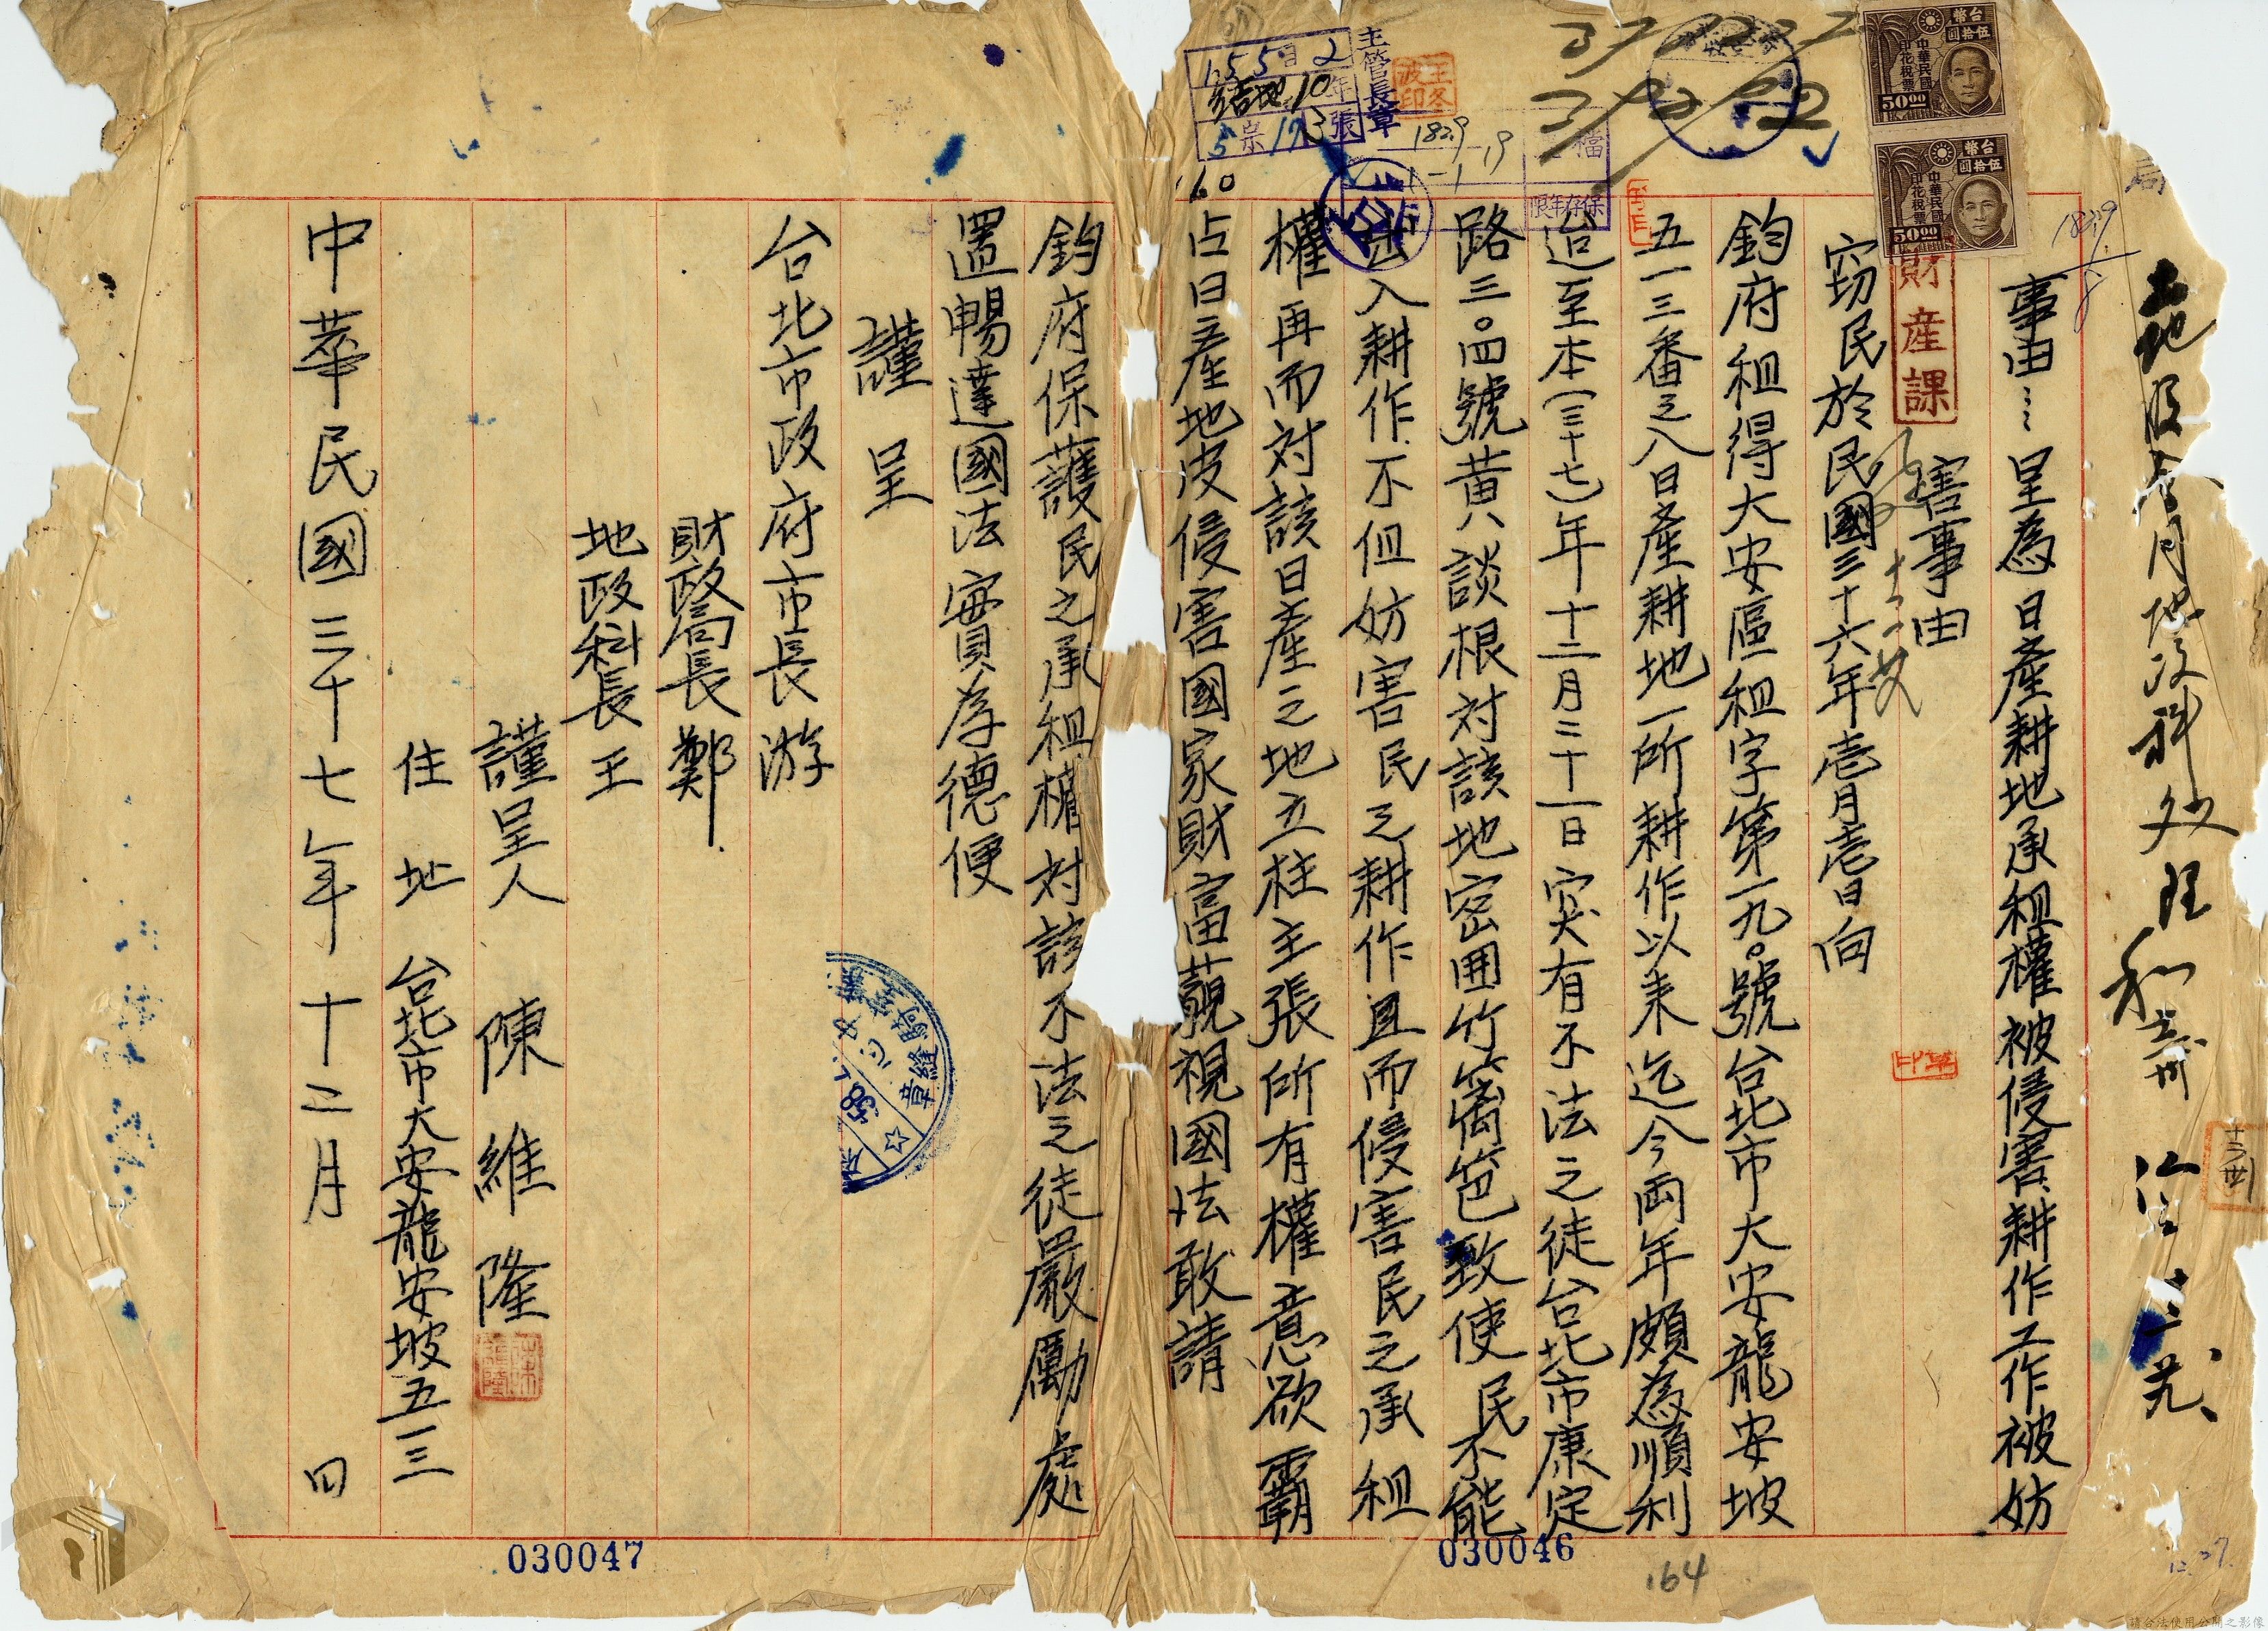 事由……呈為日產耕地承租權被侵害耕作工作被妨
害事由
竊民於民國三十六年壱月壱日向
鈞府租得大安區租字第一九〇號台北市大安龍安坡
五一三番之八日產耕地一所耕作以来迄今両年頗為順利
迨至本(三十七)年十二月三十一日突有不法之徒台北市康定
路三〇四號黃談根対該地密囲竹籬笆致使民不能
入耕作不但妨害民之耕作且而侵害民之承租
權再而対該日產之地立柱主張所有權意欲霸
占日產地皮侵害國家財富藐視國法敢請
鈞府保護民之承租權対該不法之徒嚴勵處
置暢達國法實為德便
謹呈
台北市政府市長游
財政局長鄭
地政科長王
謹呈人 陳維隆
住址 台北市大安龍安坡五一三
中華民國三十七年十二月 四
財產課
主管長章
台幣
伍拾圓
中華民國
印花稅票
50 00
台幣
伍拾圓
中華民國
印花稅票
50 00
檔
保存年限
騎縫章
030047
030046
164
請合法使用公開之影像